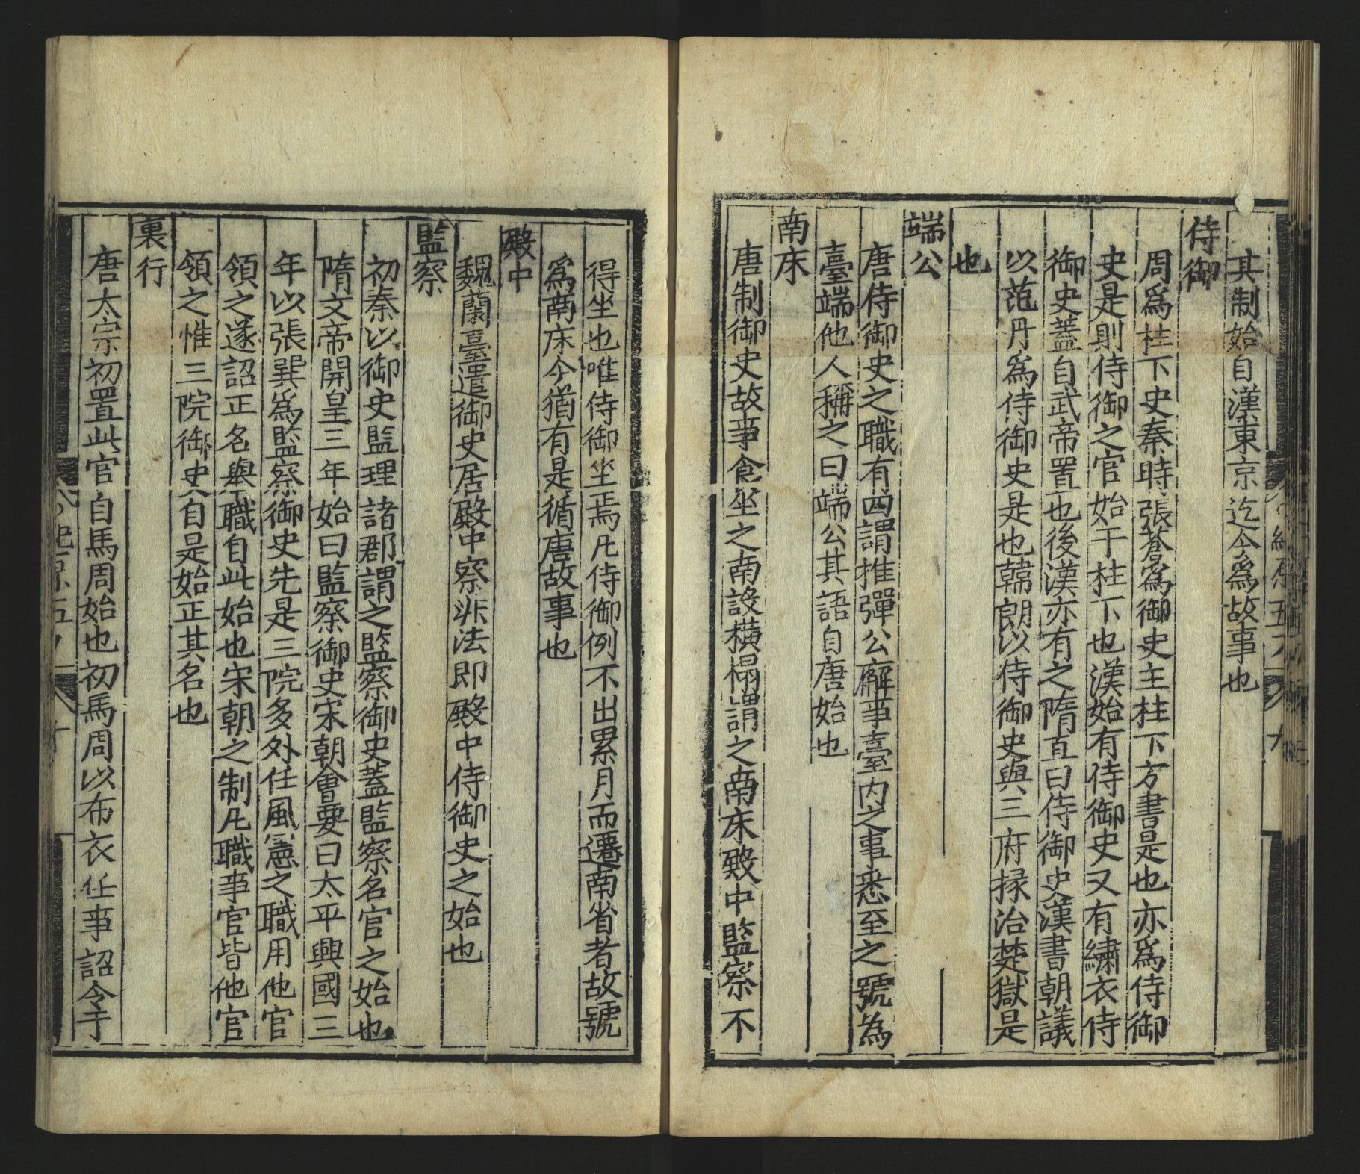 其制始自漢東京迄今爲故事也
侍御
周爲柱下史秦時張蒼爲御史主柱下方書是也亦爲侍御
史是則侍御之官始于柱下也漢始有侍御史又有繡衣侍
御史蓋自武帝置也後漢亦有之隋直曰侍御史漢書朝議
以范丹爲侍御史是也韓朗以侍御史與三府掾治楚獄是
也
端公
唐侍御史之職有四謂推彈公廨事臺内之事悉至之號為
臺端他人稱之曰端公其語自唐始也
南床
唐制御史故事食坐之南設橫榻謂之南床殿中監察不
得坐也唯侍御坐焉凡侍御例不出累月而遷南省者故號
爲南床今猶有是循唐故事也
殿中
魏蘭臺遣御史居殿中察非法即殿中侍御史之始也
監察
初秦以御史監理諸郡謂之監察御史蓋監察名官之始也
隋文帝開皇三年始曰監察御史宋朝會要曰太平興國三
年以張巽爲監察御史先是三院多外任風憲之職用他官
領之遂詔正名與職自此始也宋朝之制凡職事官皆他官
領之惟三院御史自是始正其名也
裏行
唐太宗初置此官自馬周始也初馬周以布衣任事詔令于